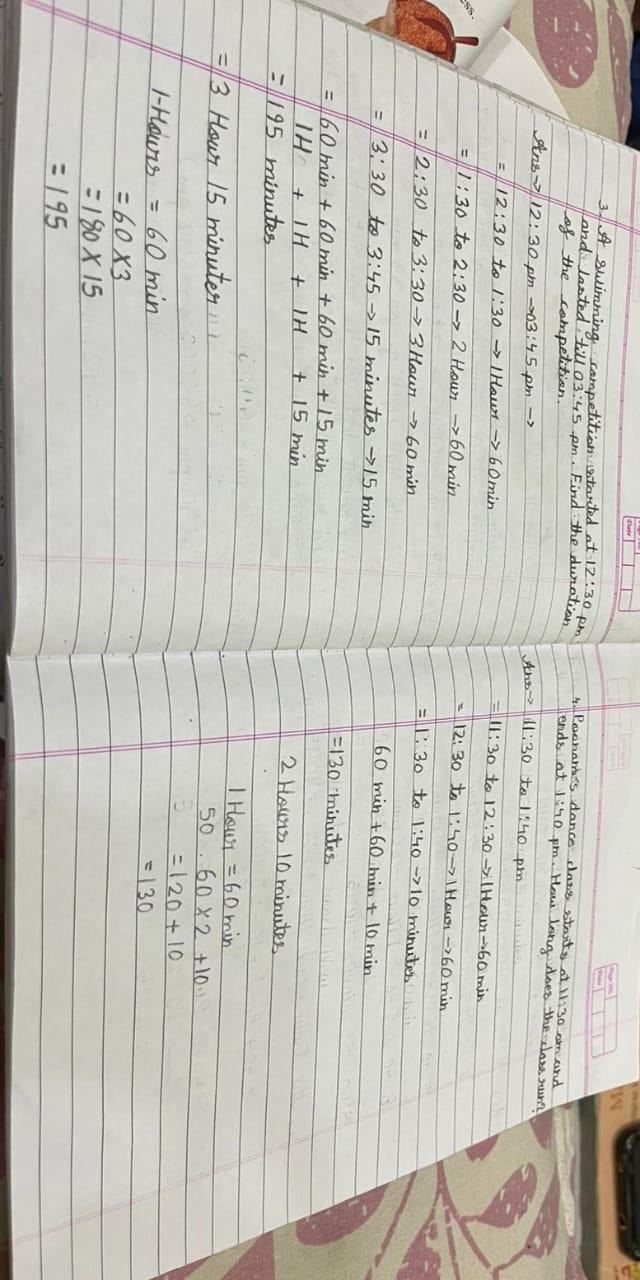 3. A swimming competition started at 12:30 pm
and lasted till 03:45 pm. Find the duration
of the competition.
Ans→ 12:30 pm → 03:45 pm →
= 12:30 to 1:30 → 1Hour → 60 min
= 1:30 to 2:30 → 2 Hour → 60 min
= 2:30 to 3:30 → 3 Hour → 60 min
= 3:30 to 3:45 → 15 minutes → 15 min
= 60 min + 60 min + 60 min + 15 min
1H + 1H + 1H + 15 min
= 195 minutes
= 3 Hour 15 minutes
1-Hours = 60 min
= 60 X 3
= 180 X 15
= 195
4. Poonam's dance class starts at 11:30 am and
ends at 1:40 pm. How long does the class run?
Ans→ 11:30 to 1:40 pm
= 11:30 to 12:30 → 1Hour → 60 min
= 12:30 to 1:40 → 1Hour → 60 min
= 1:30 to 1:40 → 10 minutes
60 min + 60 min + 10 min
= 130 minutes
2 Hours 10 minutes
1 Hour = 60 min
50 . 60 X 2 + 10
= 120 + 10
= 130